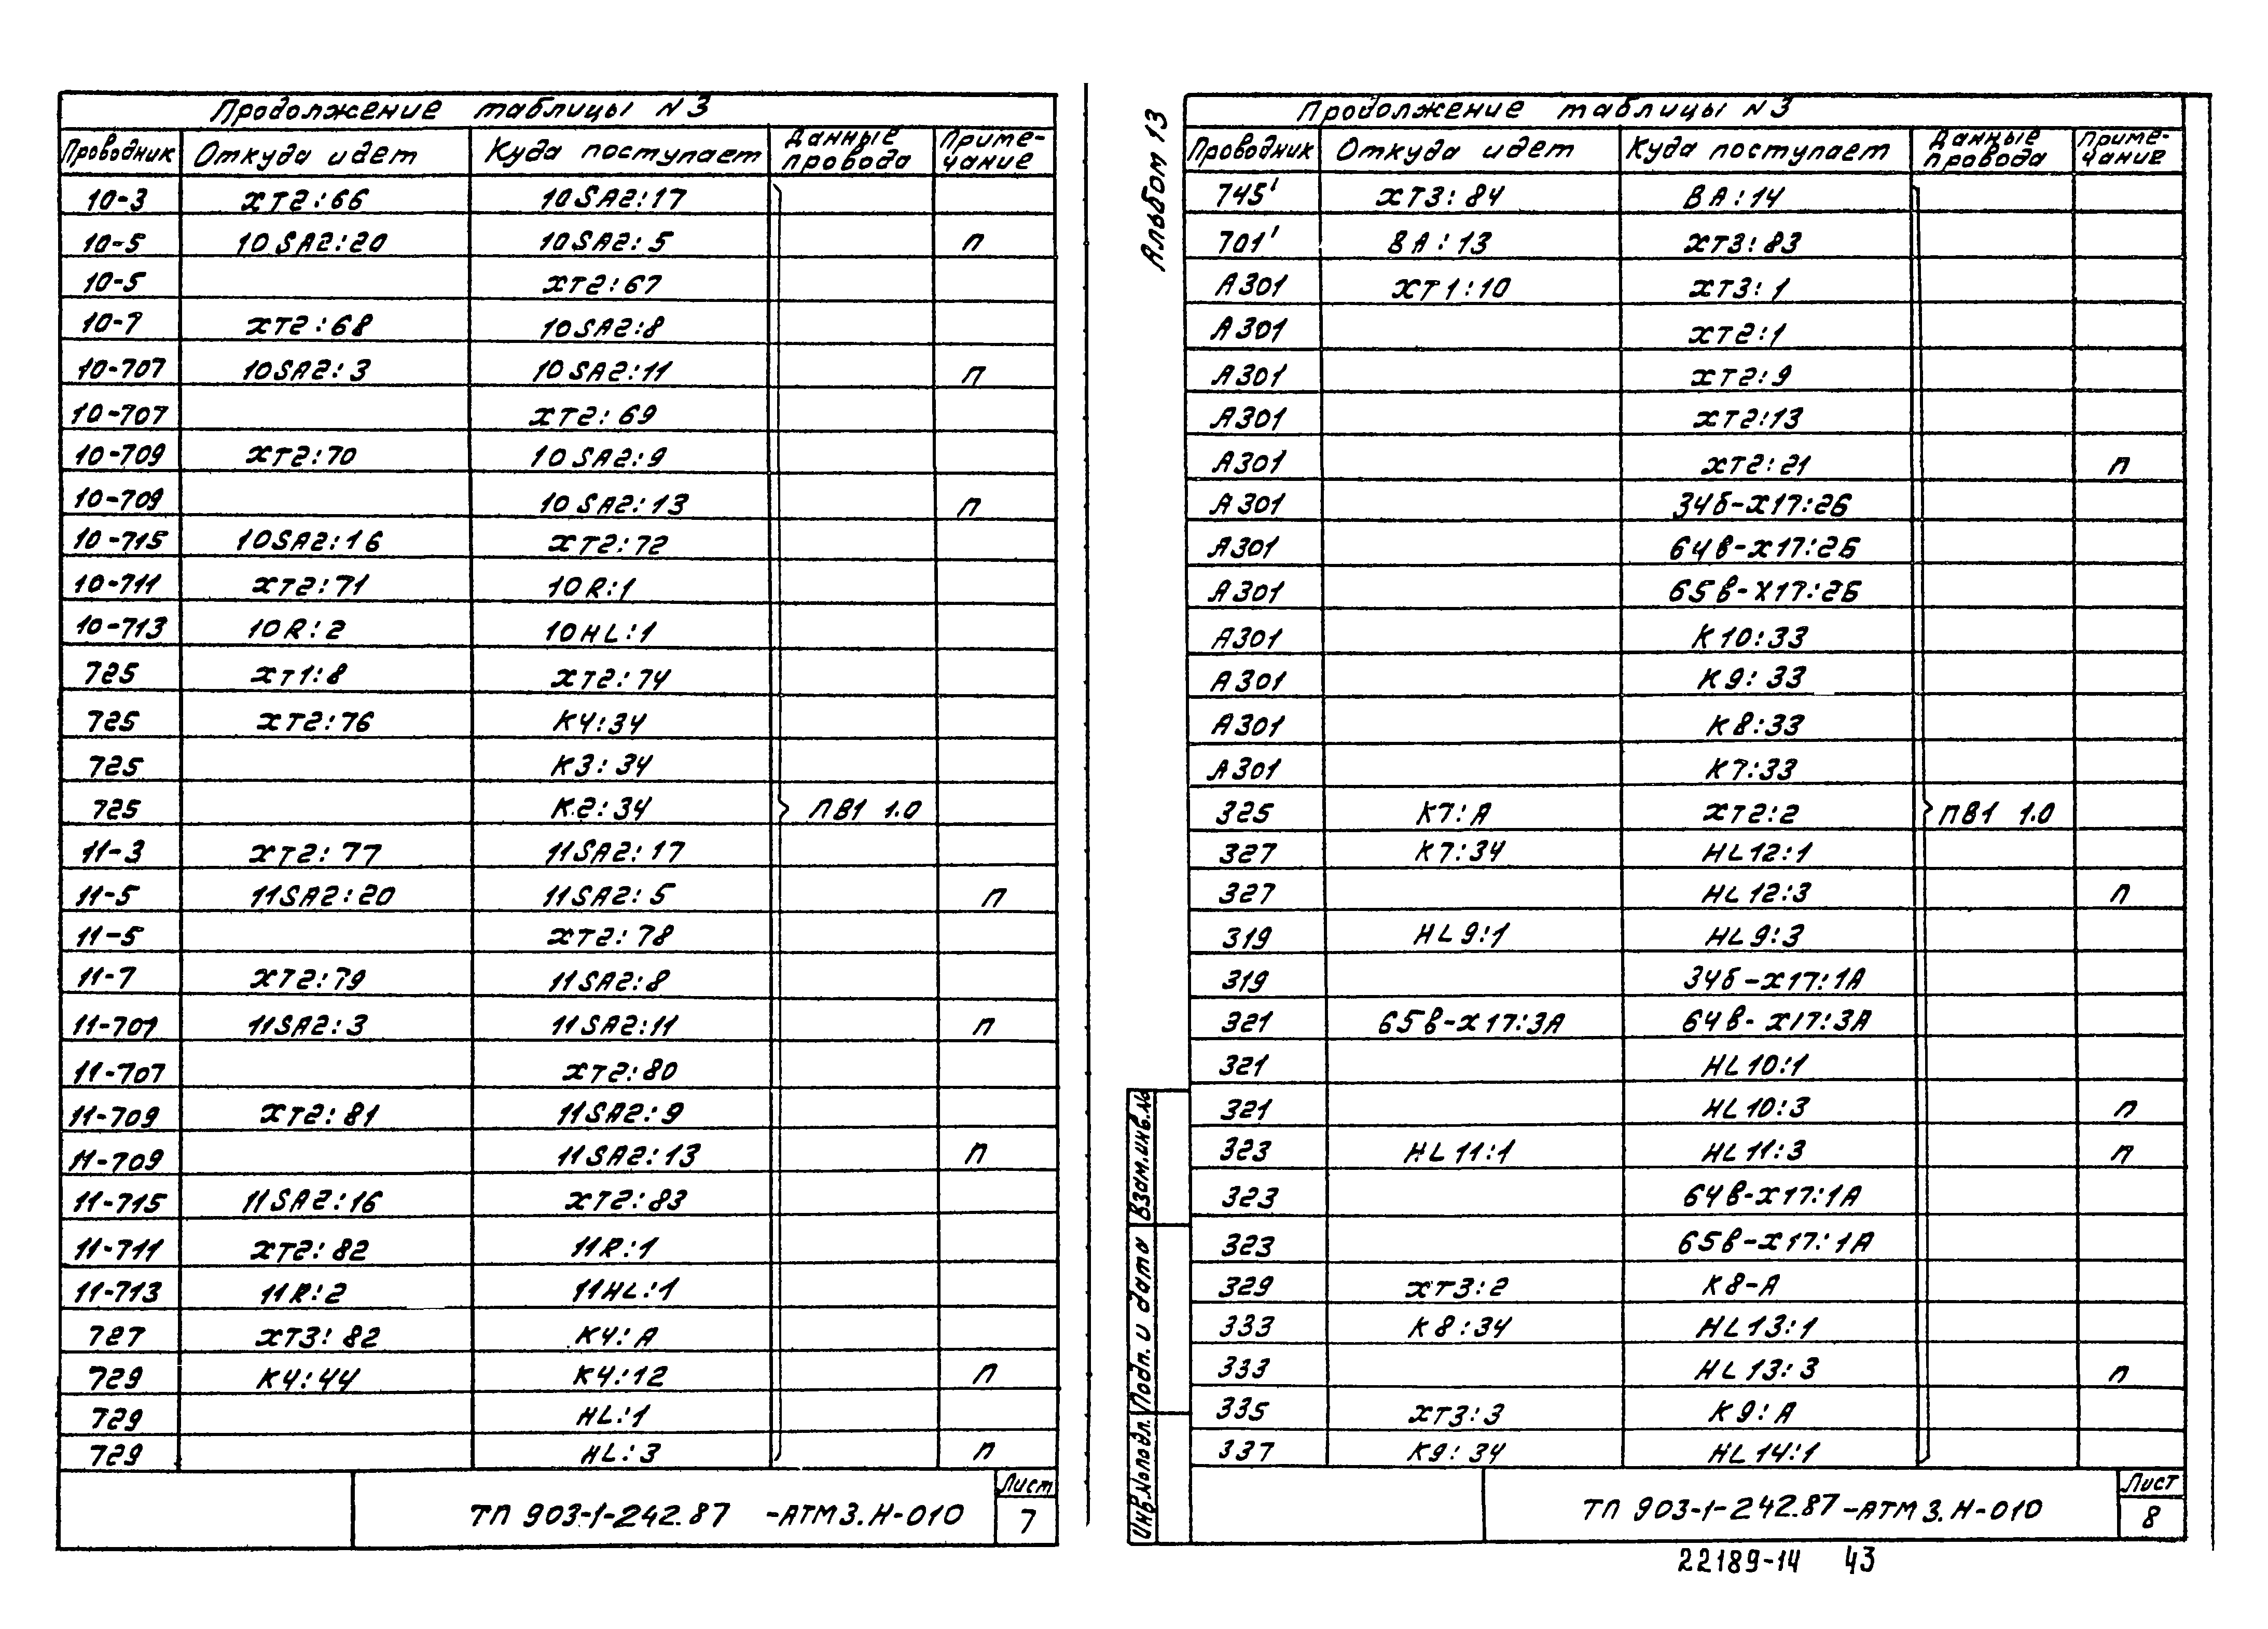 Продолжение таблицы N3
Проводник Откуда идет Куда поступает Данные провода Приме-чание
10-3 ХТ2:66 10SA2:17
10-5 10SA2:20 10SA2:5 п
10-5 ХТ2:67
10-7 ХТ2:68 10SA2:8
10-707 10SA2:3 10SA2:11 п
10-707 ХТ2:69
10-709 ХТ2:70 10SA2:9
10-709 10SA2:13 п
10-715 10SA2:16 ХТ2:72
10-711 ХТ2:71 10R:1
10-713 10R:2 10HL:1
725 ХТ1:8 ХТ2:74
725 ХТ2:76 К4:34
725 К3:34
725 К2:34 ПВ1 1.0
11-3 ХТ2:77 11SA2:17
11-5 11SA2:20 11SA2:5 п
11-5 ХТ2:78
11-7 ХТ2:79 11SA2:8
11-707 11SA2:3 11SA2:11 п
11-707 ХТ2:80
11-709 ХТ2:81 11SA2:9
11-709 11SA2:13 п
11-715 11SA2:16 ХТ2:83
11-711 ХТ2:82 11R:1
11-713 11R:2 11HL:1
727 ХТ3:82 К4:А
729 К4:44 К4:12 п
729 HL:1
729 HL:3 п
ТП 903-1-242.87 -АТМ3.Н-010
Лист
7
Альбом 13
Продолжение таблицы N3
Проводник Откуда идет Куда поступает Данные провода Приме-чание
745' ХТ3:84 ВА:14
701' ВА:13 ХТ3:83
А301 ХТ1:10 ХТ3:1
А301 ХТ2:1
А301 ХТ2:9
А301 ХТ2:13
А301 ХТ2:21 п
А301 34б-Х17:2Б
А301 64в-Х17:2Б
А301 65в-Х17:2Б
А301 К10:33
А301 К9:33
А301 К8:33
А301 К7:33
325 К7:А ХТ2:2 ПВ1 1.0
327 К7:34 HL12:1
327 HL12:3 п
319 HL9:1 HL9:3
319 34б-Х17:1А
321 65в-Х17:3А 64в-Х17:3А
321 HL10:1
321 HL10:3 п
323 HL11:1 HL11:3 п
323 64в-Х17:1А
323 65в-Х17:1А
329 ХТ3:2 К8-А
333 К8:34 HL13:1
333 HL13:3 п
335 ХТ3:3 К9:А
337 К9:34 HL14:1
Взам.инв.№
Подп. и дата
Инв.№подл.
ТП 903-1-242.87-АТМ3.Н-010
Лист
8
22189-14 43